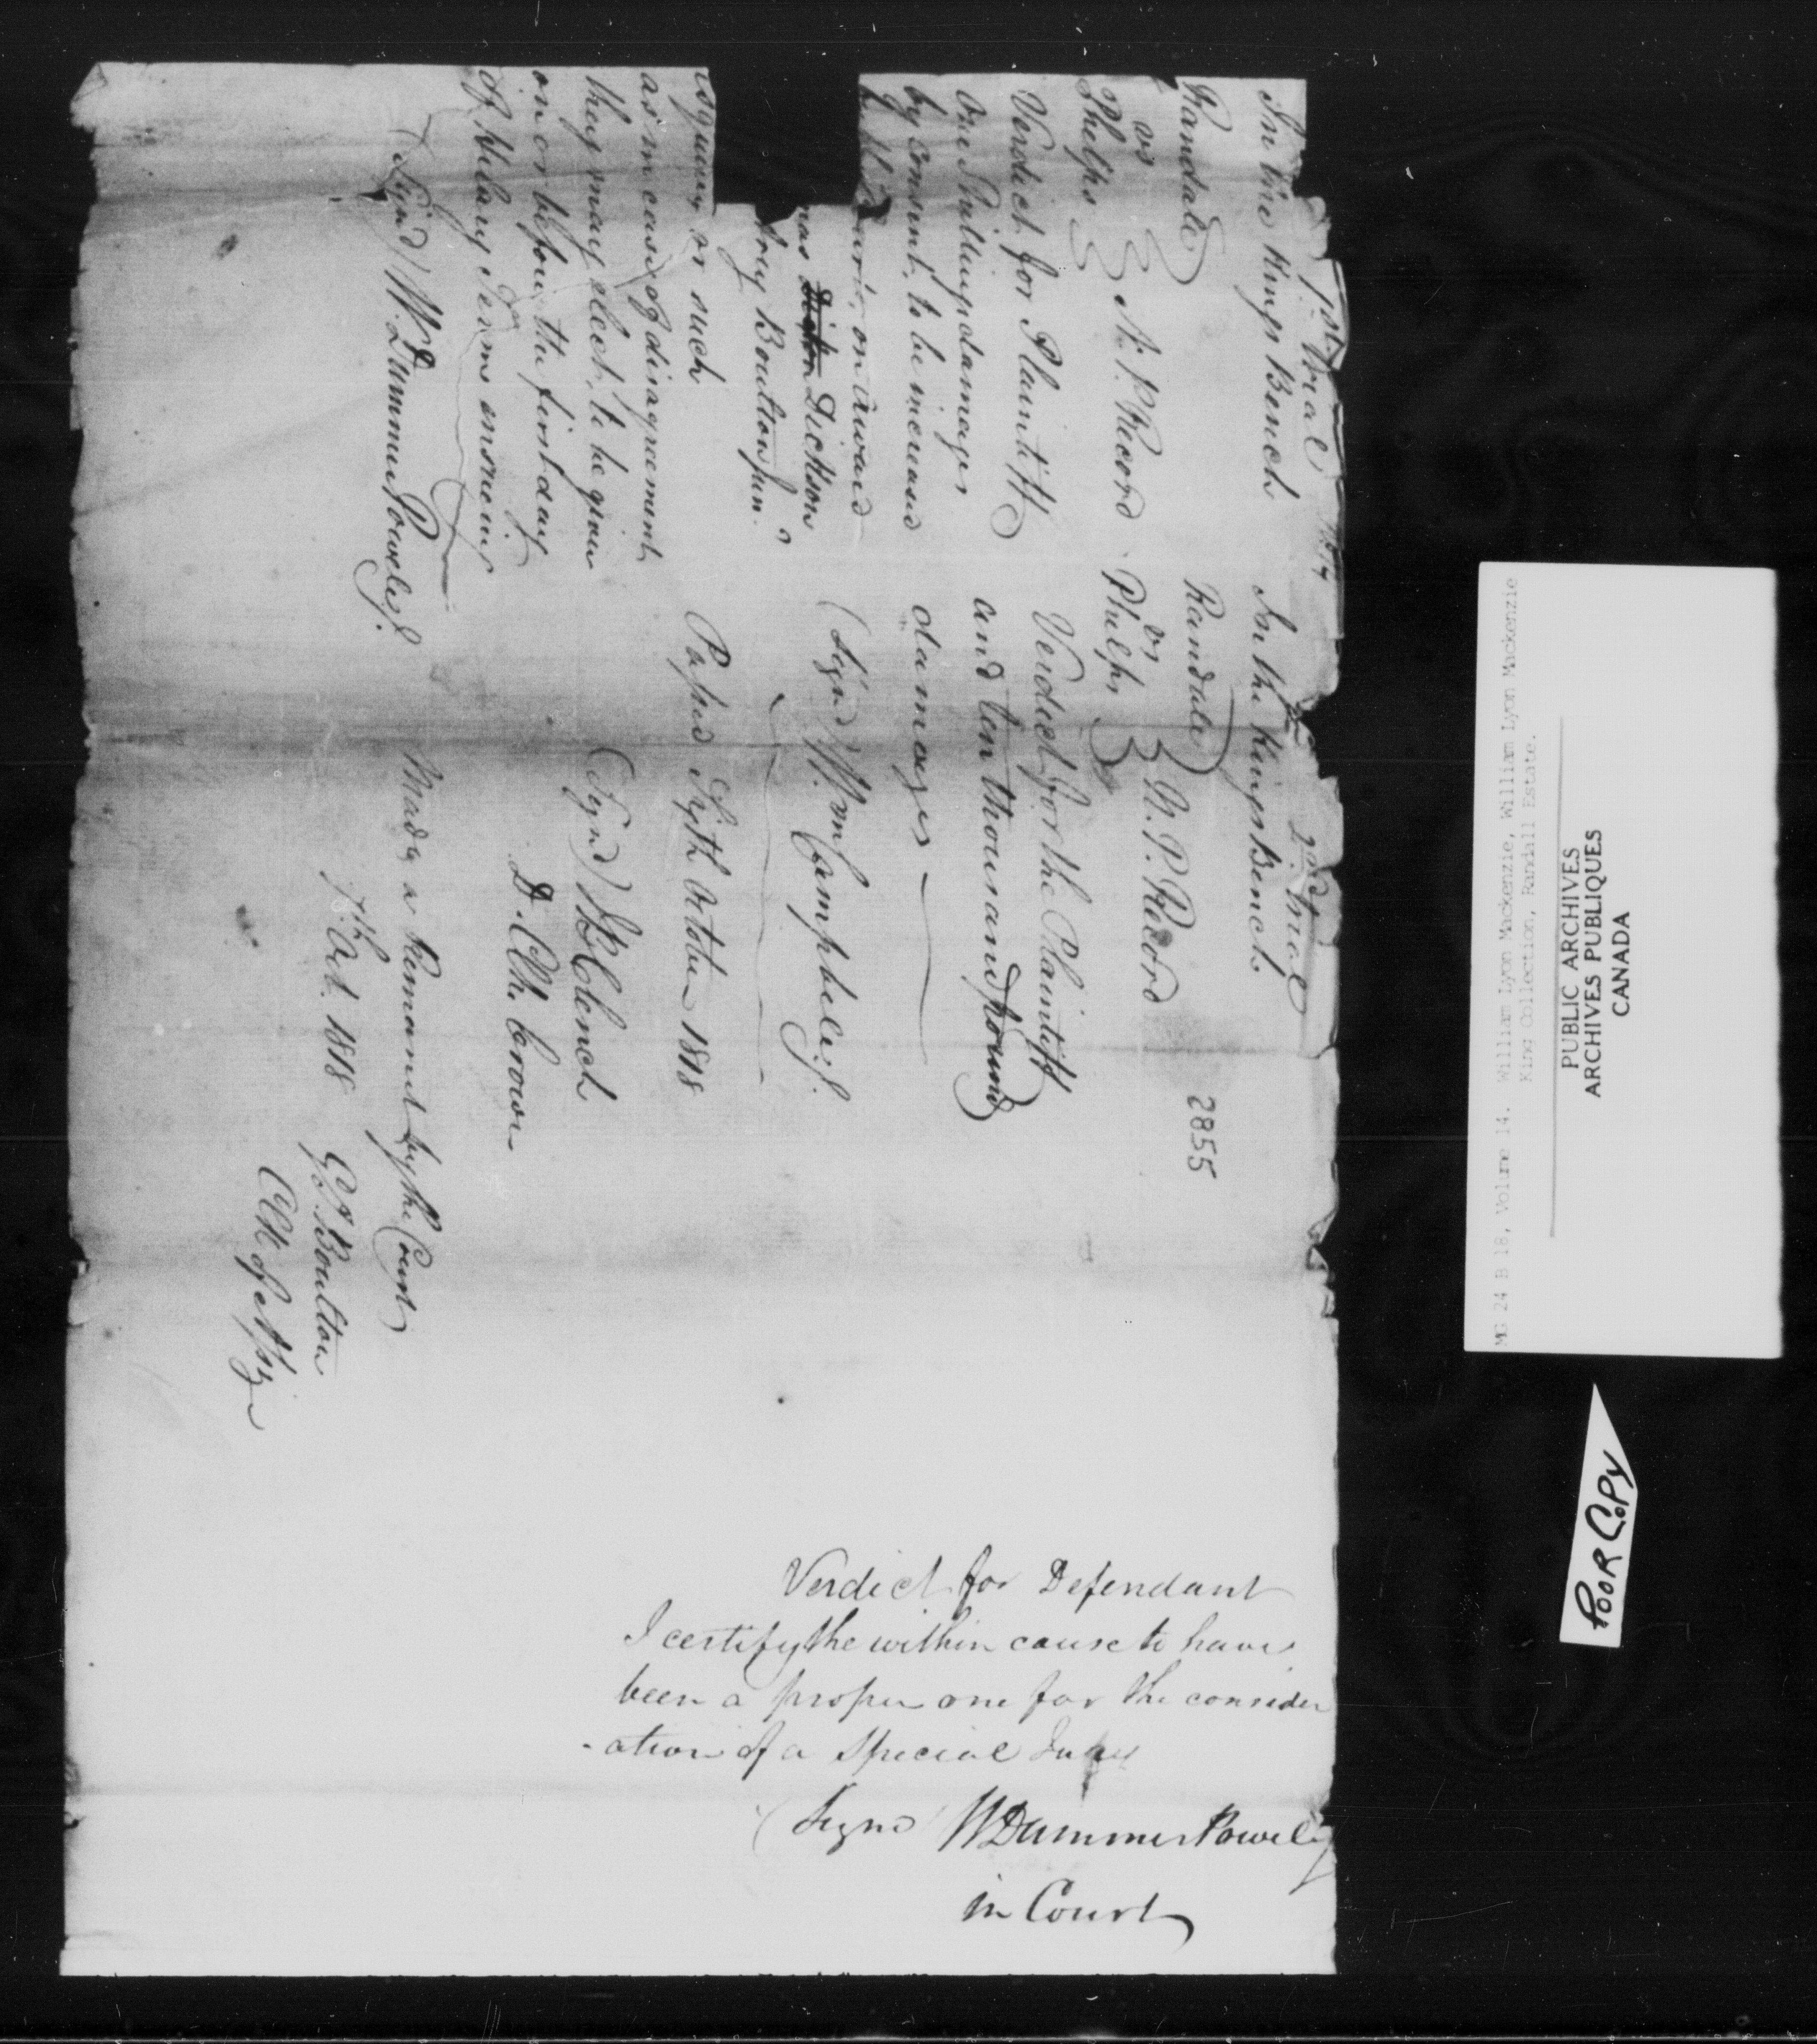 1st. Trial
In the Kings Bench
Randale
vs
N. P. Record
Phelps
Verdict for Plaintiff
One Shilling damages
by consent, to be increased
on award
Dickson
Boulton Junr.
or such
as in case of disagreement
they may elect, to be given
on or before the first day
of Hilary Term ensueing
(Signd) Wm. Dummer Powell CJ.
2nd Trial
In the Kings Bench
Randale
vs
N. P. Record
Phelps
Verdict for the Plaintiff
and ten thousand pound
damages
(Signd) Wm Campbell J.
Passed Sixth October 1818
(Signd) Clench
D. Clk. Crown
Made a Remanet by the Court
7th. Oct. 1818
Boulton
Clk of Assize
2855
Verdict for Defendant
I certify the within cause to have
been a proper one for the consider
-ation of a Special Jury
(Signd WDummer Powell CJ
in Court
MG 24 B 18, Volume 14. William Lyon Mackenzie, William Lyon Mackenzie
King Collection, Randall Estate.
PUBLIC ARCHIVES
ARCHIVES PUBLIQUES
CANADA
POOR COPY